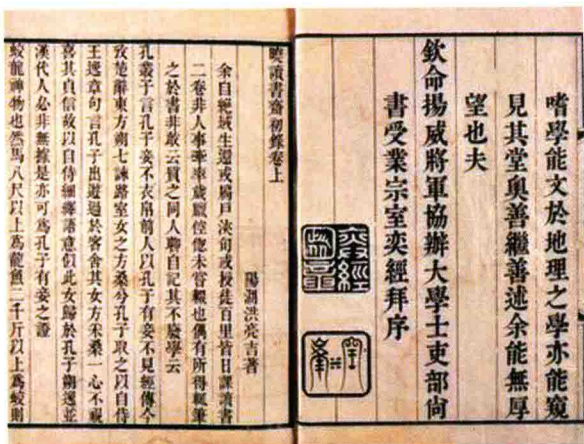 嗜學能文於地理之學亦能窺
見其堂奧善繼善述余能無厚
望也夫
欽命揚威將軍協辦大學士吏部尙
書受業宗室奕經拜序
奕經
曉讀書齋初錄卷上
陽湖洪亮吉著
余自絕域生還或闔戶浹旬或授徒百里皆日課讀書
二卷非人事牽率歲臘倥偬未甞輟也偶有所得輒筆
之於書非敢云質之同人聊自記其不廢學云
孔叢子言孔子妾不衣帛前人以孔子有妾不見經傳今
攷楚辭東方朔七諫路室女之方桑兮孔子取之以自侍
王逸章句言孔子出遊過於客舍其女方采桑一心不視
喜其貞信故以自侍細繹語意似此女歸於孔子朔逸並
漢代人必非無據是亦可爲孔子有妾之證
蛟龍神物也然馬八尺以上爲龍魚二千斤以上爲蛟則